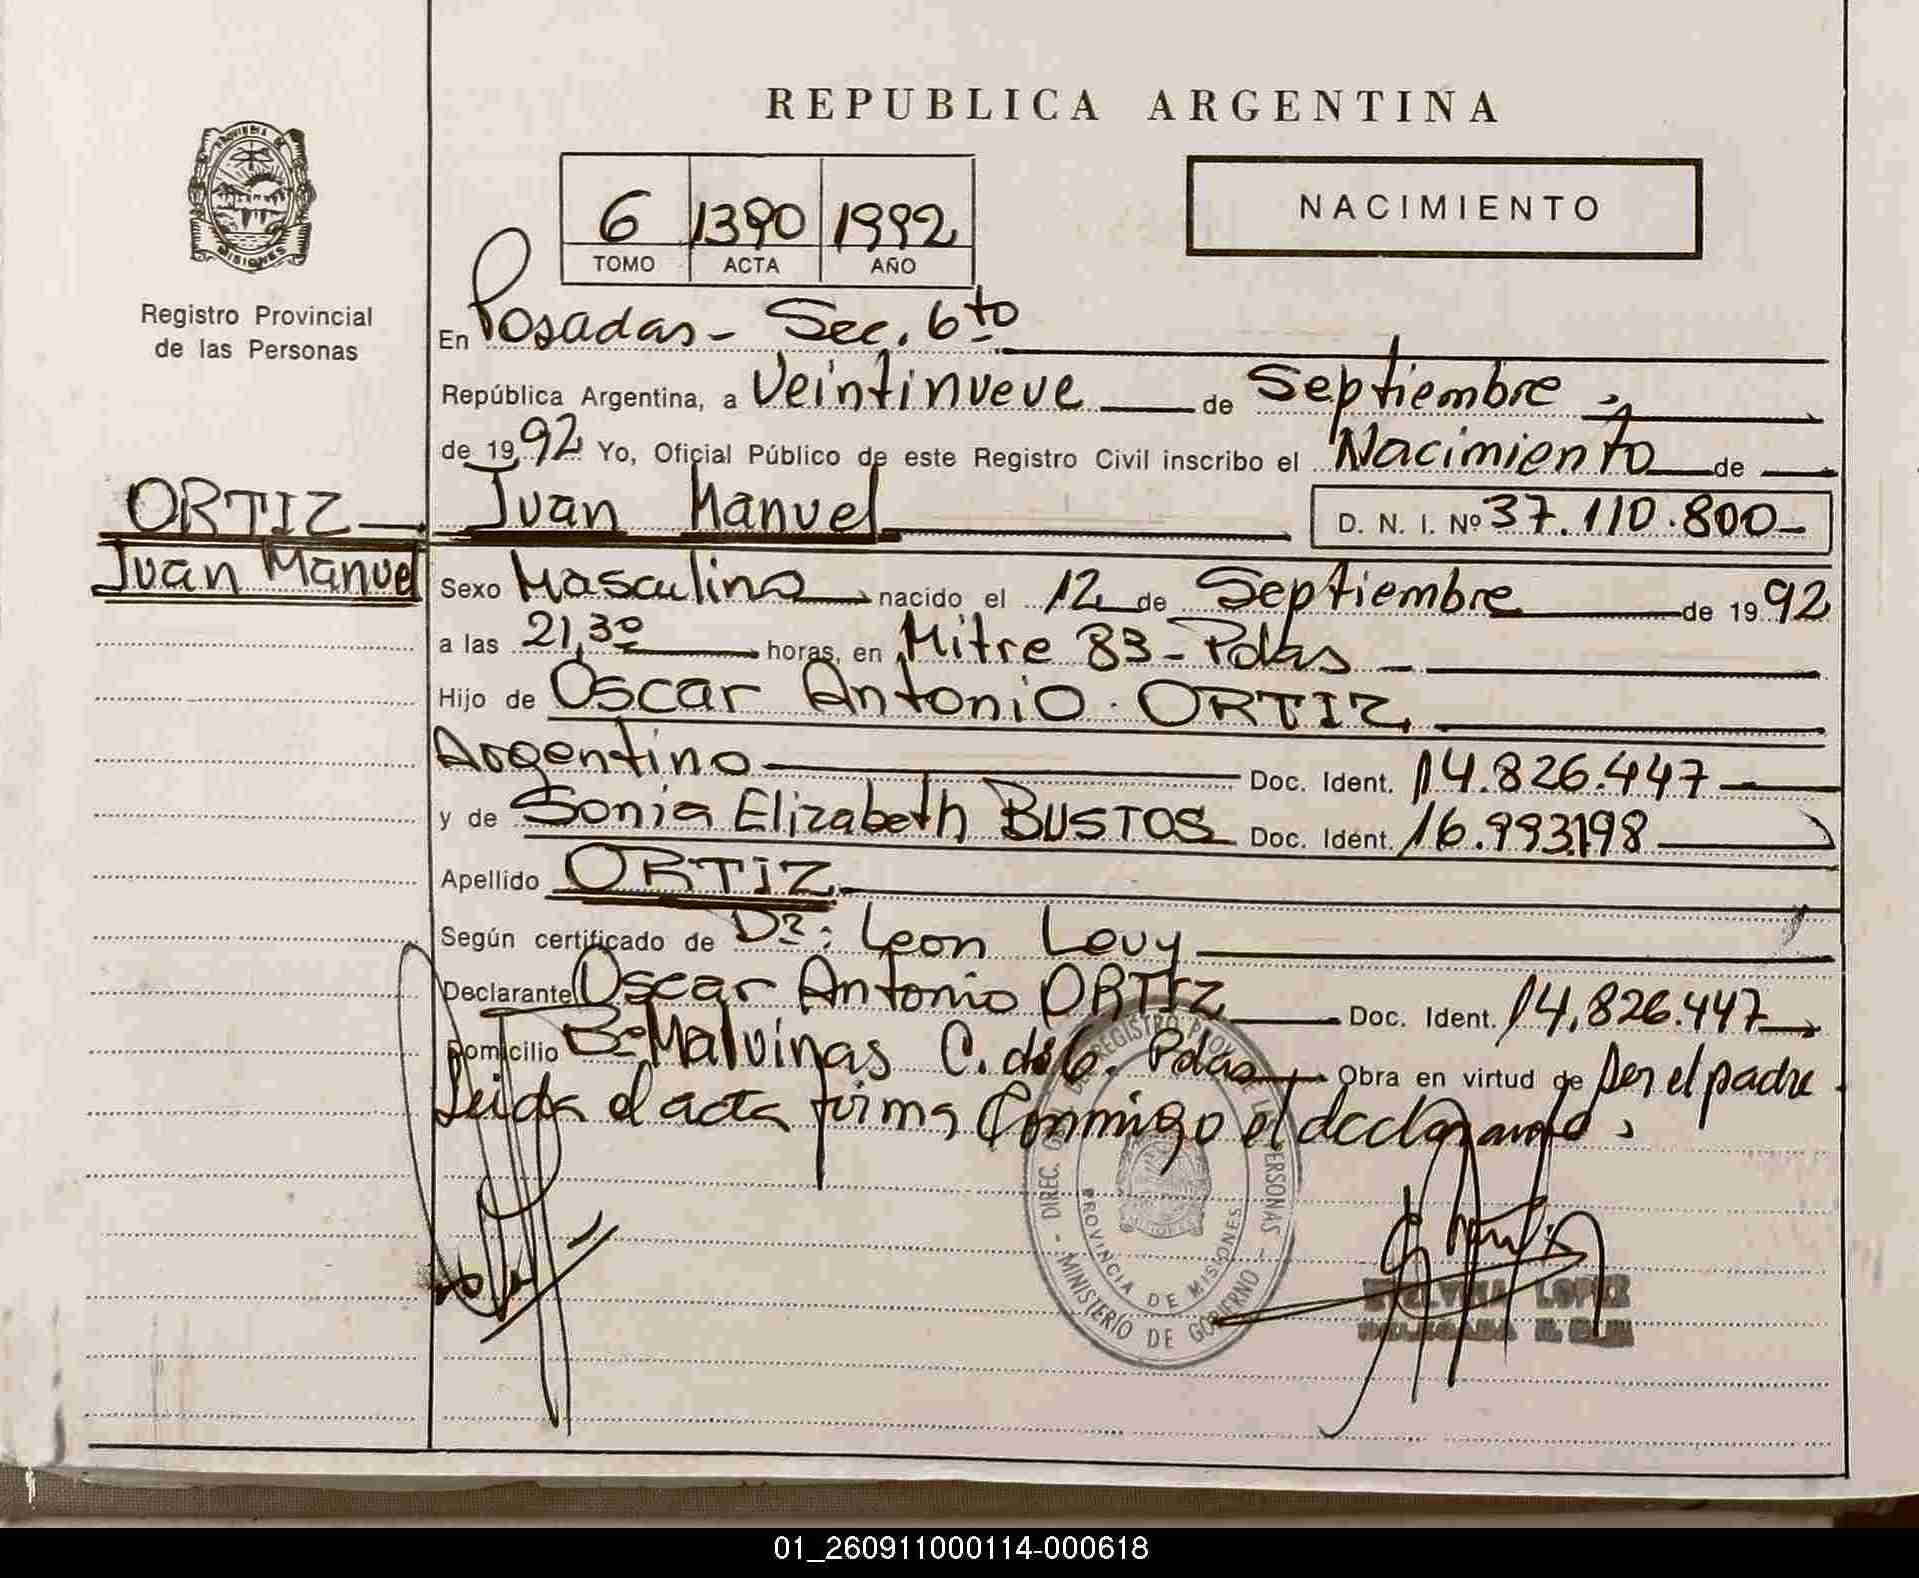 REPUBLICA ARGENTINA
NACIMIENTO
6 1390 1992
TOMO ACTA AÑO
Registro Provincial
de las Personas
En Posadas - Sec. 6to
República Argentina, a Veintinueve de Septiembre
de 1992 Yo, Oficial Público de este Registro Civil inscribo el Nacimiento de
ORTIZ
Juan Manuel
Juan Manuel D. N. I. Nº 37.110.800
Sexo Masculino nacido el 12 de Septiembre de 1992
a las 21,30 horas, en Mitre 83 - Pdas
Hijo de Oscar Antonio ORTIZ
Argentino Doc. Ident. 14.826.447
y de Sonia Elizabeth BUSTOS Doc. Ident. 16.993.198
Apellido ORTIZ
Según certificado de Dr: Leon Levy
Declarante Oscar Antonio ORTIZ Doc. Ident. 14.826.447
Domicilio Bº Malvinas C. de 6. Pdas Obra en virtud de ser el padre.
Leida el acta firma conmigo el declarante.
DIREC. REGISTRO PERSONAS
PROVINCIA DE MISIONES
MINISTERIO DE GOBIERNO
LOPEZ
01_260911000114-000618